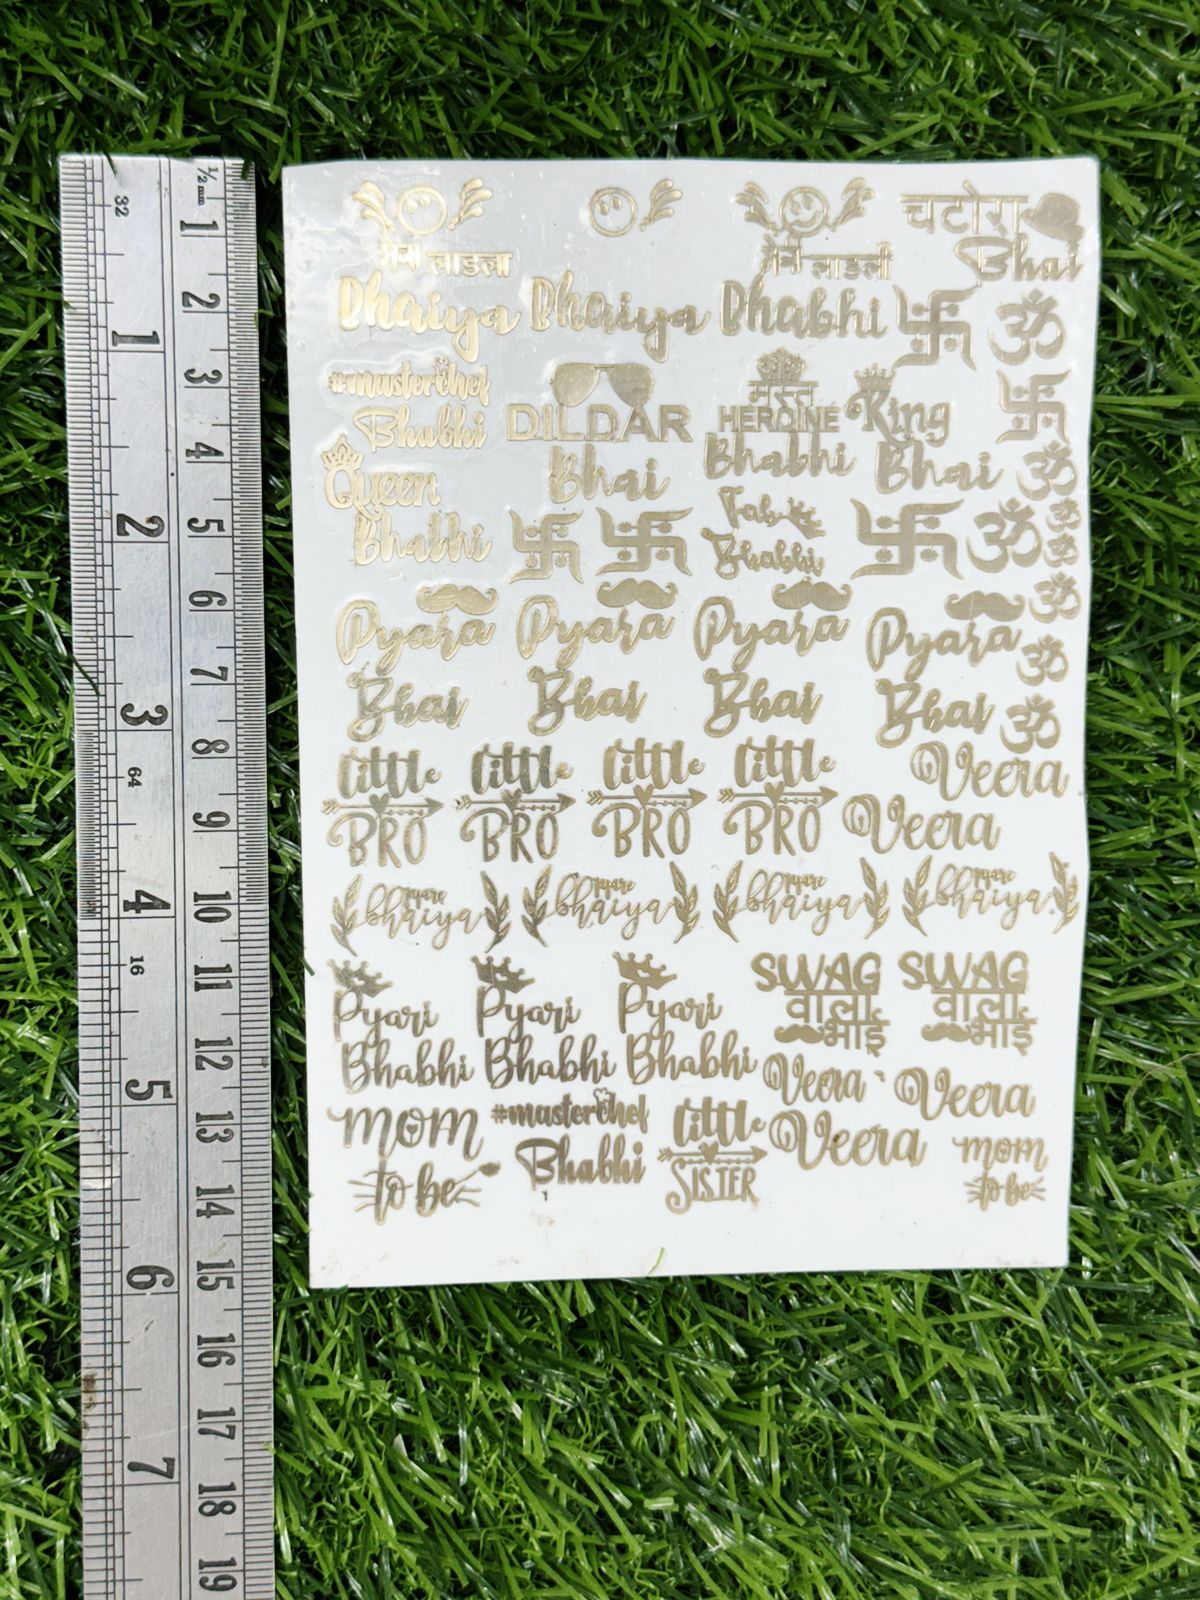 मेरा लाडला
Bhaiya
Bhaiya
मेरी लाडली
Bhabhi
चटोरा
Bhai
ॐ
#masterchef
Bhabhi
DILDAR
Bhai
मस्त
HEROINE
Bhabhi
King
Bhai
ॐ
Queen
Bhabhi
Fab
Bhabhi
ॐ
ॐ
ॐ
Pyara
Bhai
Pyara
Bhai
Pyara
Bhai
Pyara
Bhai
ॐ
ॐ
ॐ
little
BRO
little
BRO
little
BRO
little
BRO
Veera
Veera
pyare
bhaiya
pyare
bhaiya
pyare
bhaiya
pyare
bhaiya
Pyari
Bhabhi
Pyari
Bhabhi
Pyari
Bhabhi
SWAG
वाला
भाई
SWAG
वाला
भाई
Veera
Veera
mom
to be
#masterchef
Bhabhi
little
SISTER
Veera
mom
to be
½ mm
1 2 3 4 5 6 7 8 9 10 11 12 13 14 15 16 17 18 19
32
1 2 3
64
4
16
5 6 7